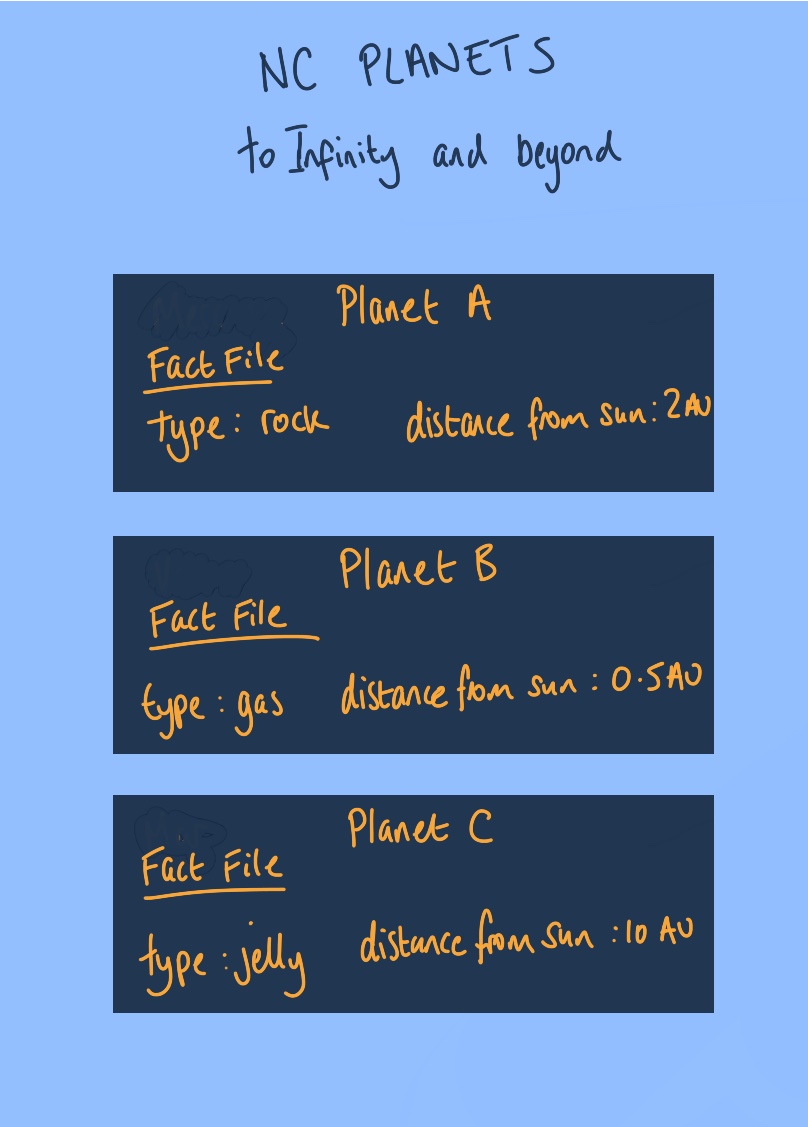 NC PLANETS
to Infinity and beyond
Planet A
Fact File
type: rock distance from sun: 2AU
Planet B
Fact File
type: gas distance from sun: 0.5AU
Planet C
Fact File
type: jelly distance from sun: 10 AU